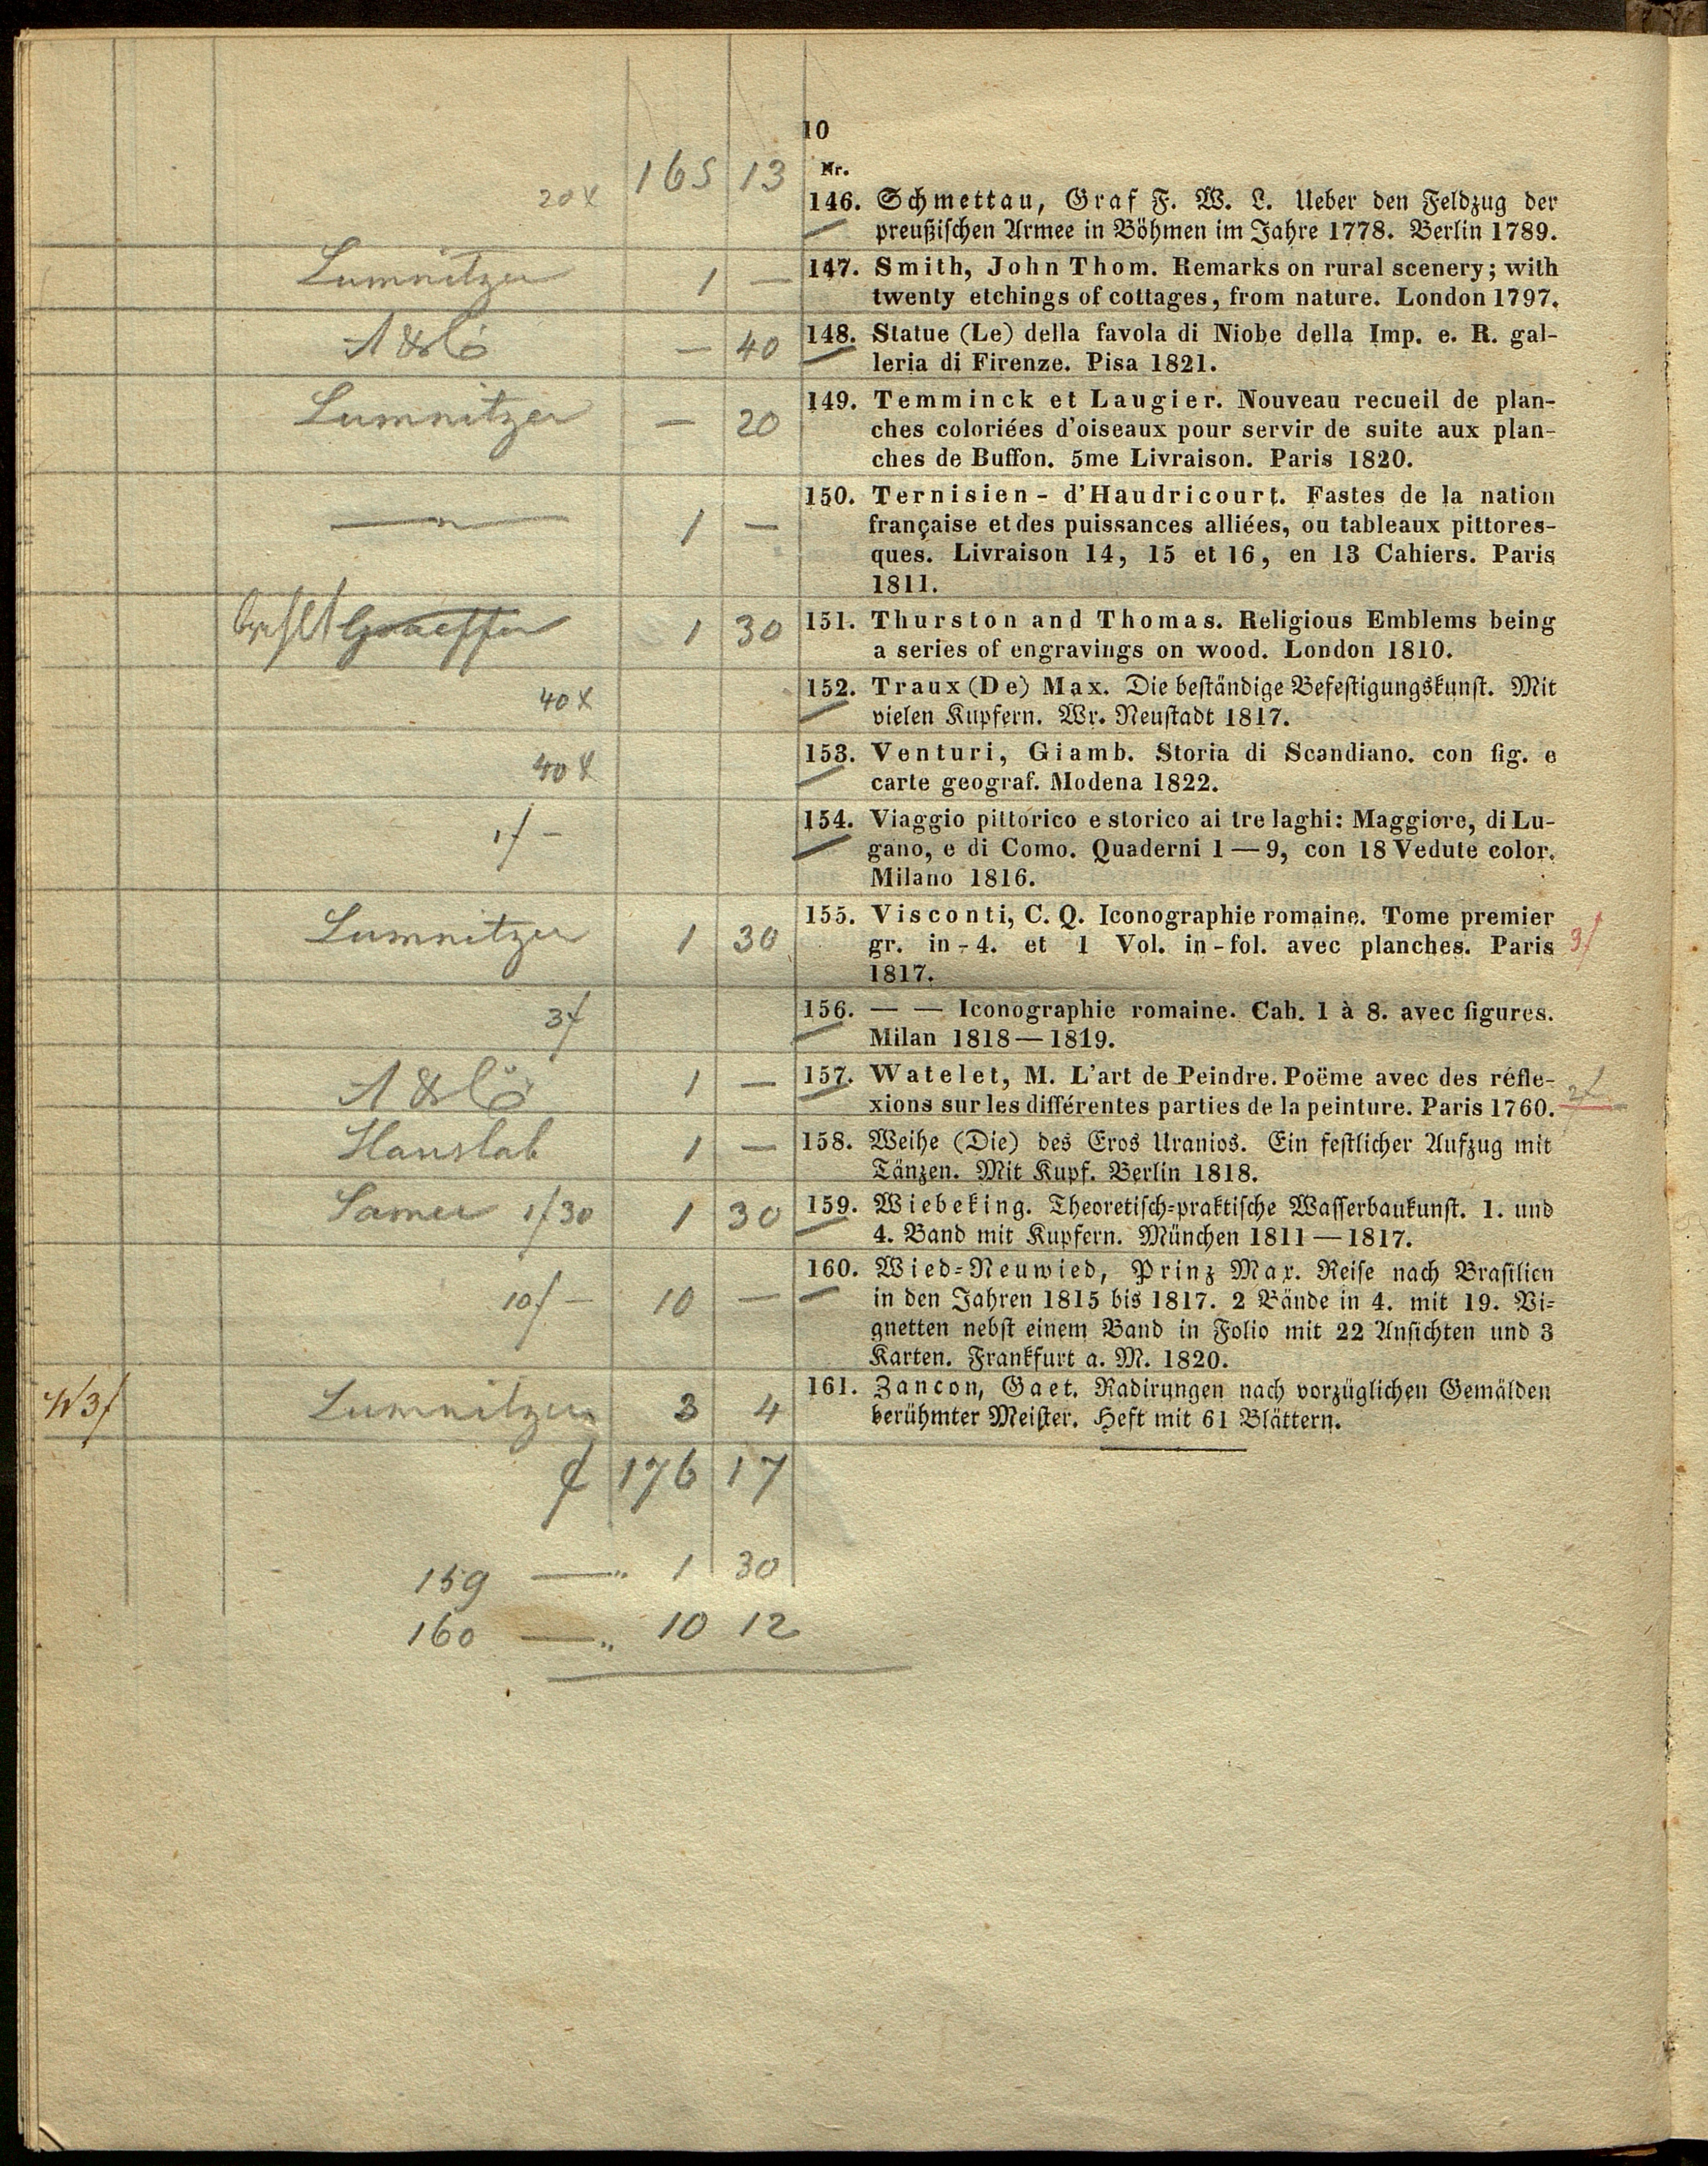 10
165 13
Nr.
20 x
146. Schmettau, Graf F. W. L. Ueber den Feldzug der
preußischen Armee in Böhmen im Jahre 1778. Berlin 1789.
Lumnitzer 1 —
147. Smith, John Thom. Remarks on rural scenery; with
twenty etchings of cottages, from nature. London 1797.
— 40
148. Statue (Le) della favola di Niobe della Imp. e. R. gal-
leria di Firenze. Pisa 1821.
Lumnitzer — 20
149. Temminck et Laugier. Nouveau recueil de plan-
ches coloriées d'oiseaux pour servir de suite aux plan-
ches de Buffon. 5me Livraison. Paris 1820.
1 —
150. Ternisien - d'Haudricourt. Fastes de la nation
française et des puissances alliées, ou tableaux pittores-
ques. Livraison 14, 15 et 16, en 13 Cahiers. Paris
1811.
1 30
151. Thurston and Thomas. Religious Emblems being
a series of engravings on wood. London 1810.
40 x
152. Traux (De) Max. Die beständige Befestigungskunst. Mit
vielen Kupfern. Wr. Neustadt 1817.
40 x
153. Venturi, Giamb. Storia di Scandiano. con fig. e
carte geograf. Modena 1822.
1f —
154. Viaggio pittorico e storico ai tre laghi: Maggiore, di Lu-
gano, e di Como. Quaderni 1—9, con 18 Vedute color.
Milano 1816.
Lumnitzer 1 30
155. Visconti, C. Q. Iconographie romaine. Tome premier
gr. in-4. et 1 Vol. in-fol. avec planches. Paris
3f
1817.
3f
156. — — Iconographie romaine. Cah. 1 à 8. avec figures.
Milan 1818—1819.
1 —
157. Watelet, M. L'art de Peindre. Poëme avec des réfle-
xions sur les différentes parties de la peinture. Paris 1760.
2f
Hauslab 1 —
158. Weihe (Die) des Eros Uranios. Ein festlicher Aufzug mit
Tänzen. Mit Kupf. Berlin 1818.
1f30 1 30
159. Wiebeking. Theoretisch-praktische Wasserbaukunst. 1. und
4. Band mit Kupfern. München 1811—1817.
10f — 10 —
160. Wied-Neuwied, Prinz Max. Reise nach Brasilien
in den Jahren 1815 bis 1817. 2 Bände in 4. mit 19. Vi-
gnetten nebst einem Band in Folio mit 22 Ansichten und 3
Karten. Frankfurt a. M. 1820.
3f
Lumnitzer 3 4
161. Zancon, Gaet. Radirungen nach vorzüglichen Gemälden
berühmter Meister. Heft mit 61 Blättern.
f 176 17
159 — " 1 30
160 — " 10 12